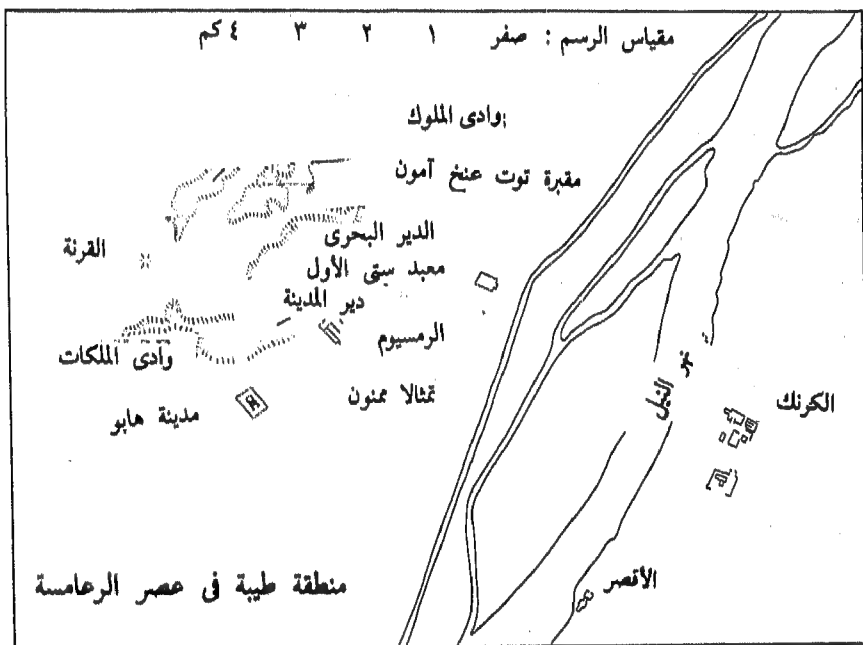 مقياس الرسم : صفر ١ ٢ ٣ ٤ كم
وادى الملوك
مقبرة توت عنخ آمون
الدير البحرى
القرنة
معبد سيتى الأول
دير المدينة
الرمسيوم
وادى الملكات
تمثالا ممنون
مدينة هابو
نهر النيل
الكرنك
الأقصر
منطقة طيبة فى عصر الرعامسة